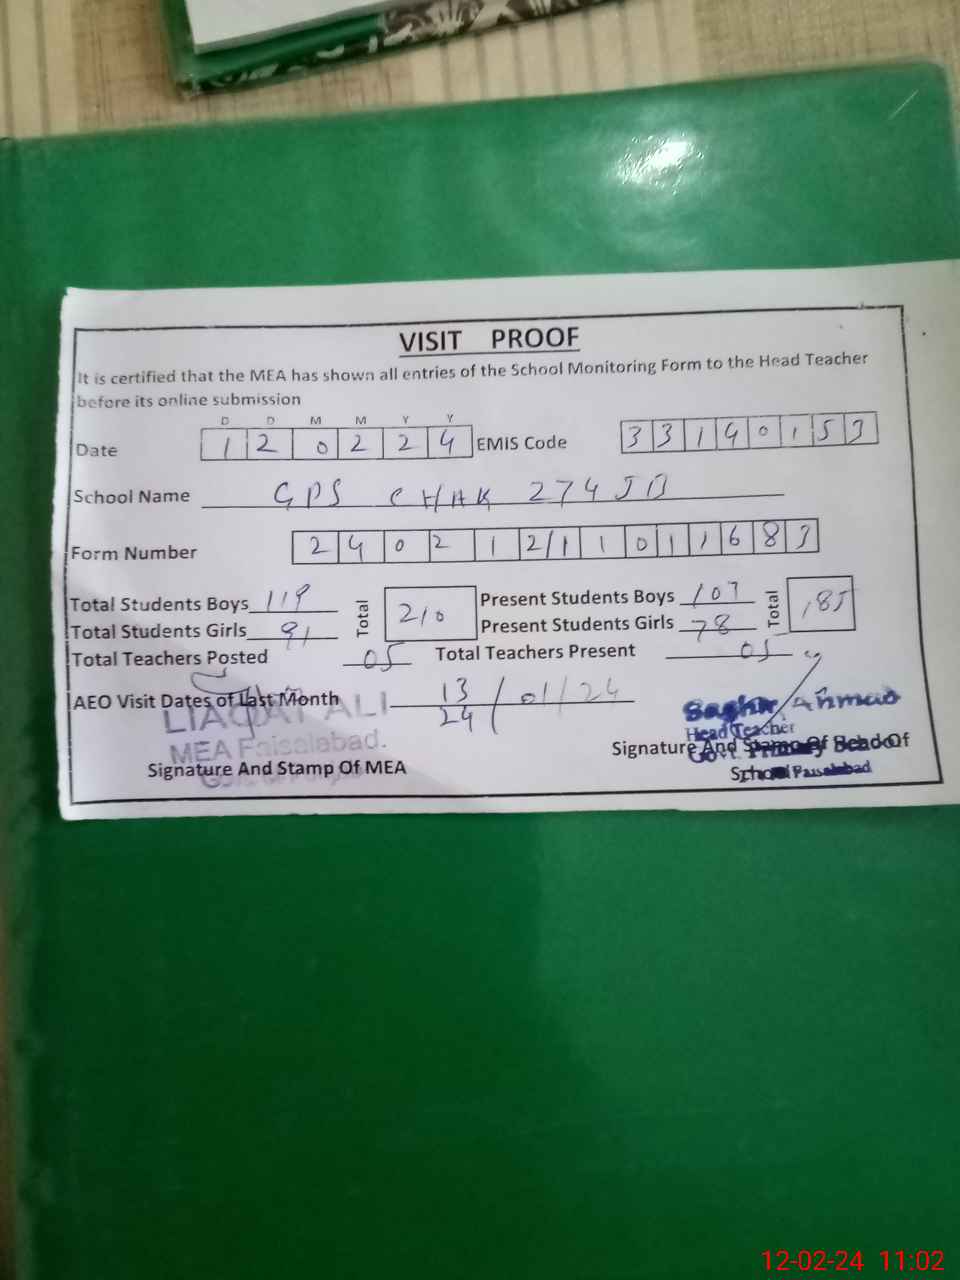 VISIT PROOF
It is certified that the MEA has shown all entries of the School Monitoring Form to the Head Teacher
before its online submission
D D M M Y Y
Date 1 2 0 2 2 4 EMIS Code 3 3 1 4 0 1 5 3
School Name GPS CHAK 274 JB
Form Number 2 4 0 2 1 2 1 1 0 1 1 6 8 3
Total Students Boys 119 Total 210 Present Students Boys 107 Total 185
Total Students Girls 91 Present Students Girls 78
Total Teachers Posted 05 Total Teachers Present 05
AEO Visit Dates of Last Month 13 / 01 / 24
24 /
LIAQAT ALI
MEA Faisalabad.
Signature And Stamp Of MEA
Ahmad
Head Teacher
Govt. Primary School
Signature And Stamp Of Head Of
School Faisalabad
12-02-24 11:02